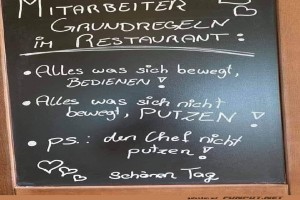 MITARBEITER
GRUNDREGELN
im RESTAURANT:
• ALLES WAS SICH bewegt,
BEDIENEN!
• ALLES WAS SICH nicht
bewegt, PUTZEN!
• ps.: den Chef nicht
putzen!
schönen Tag
WWW.FUNPOT.NET